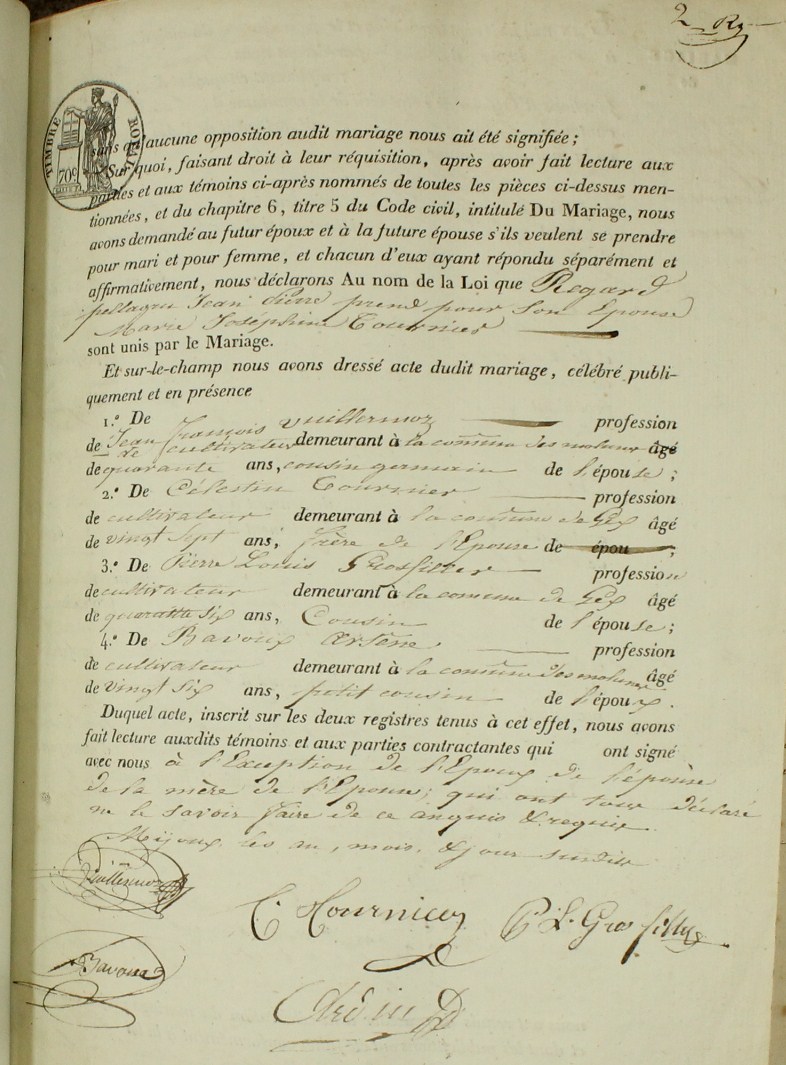 2
TIMBRE ROYAL
70c
sans qu'aucune opposition audit mariage nous ait été signifiée ;
Sur quoi, faisant droit à leur réquisition, après avoir fait lecture aux
parties et aux témoins ci-après nommés de toutes les pièces ci-dessus men-
tionnées, et du chapitre 6, titre 5 du Code civil, intitulé Du Mariage, nous
avons demandé au futur époux et à la future épouse s'ils veulent se prendre
pour mari et pour femme, et chacun d'eux ayant répondu séparément et
affirmativement, nous déclarons Au nom de la Loi que Regard
pellagru Jean pierre prend pour Son Epouse
Marie Joséphine Tournier
sont unis par le Mariage.
Et sur-le-champ nous avons dressé acte dudit mariage, célébré publi-
quement et en présence
1.º De Jean François Vuillermoz profession
de de cultivateur demeurant à la commune des molunes âgé
de quarante ans, cousin germain de l'épouse ;
2.º De Célestin Tournier profession
de cultivateur demeurant à la commune de Gex âgé
de vingt sept ans, frère de l'Epouse de épou ;
3.º De Pierre Louis Grosfilley profession
de cultivateur demeurant à la commune de Gex âgé
de quarante six ans, Cousin de l'épouse ;
4.º De Bavoux Arsène profession
de cultivateur demeurant à la commune des molunes âgé
de vingt six ans, petit cousin de l'époux .
Duquel acte, inscrit sur les deux registres tenus à cet effet, nous avons
fait lecture auxdits témoins et aux parties contractantes qui ont signé
avec nous à l'Exception de l'Epoux de l'épouse
de la mère de l'Epouse, qui ont tous déclaré
ne le savoir faire de ce enquis & requis
Mijoux les an, mois, & jour susdits
Vuillermoz
C. Tournier P. L. Grosfilley
Bavoux